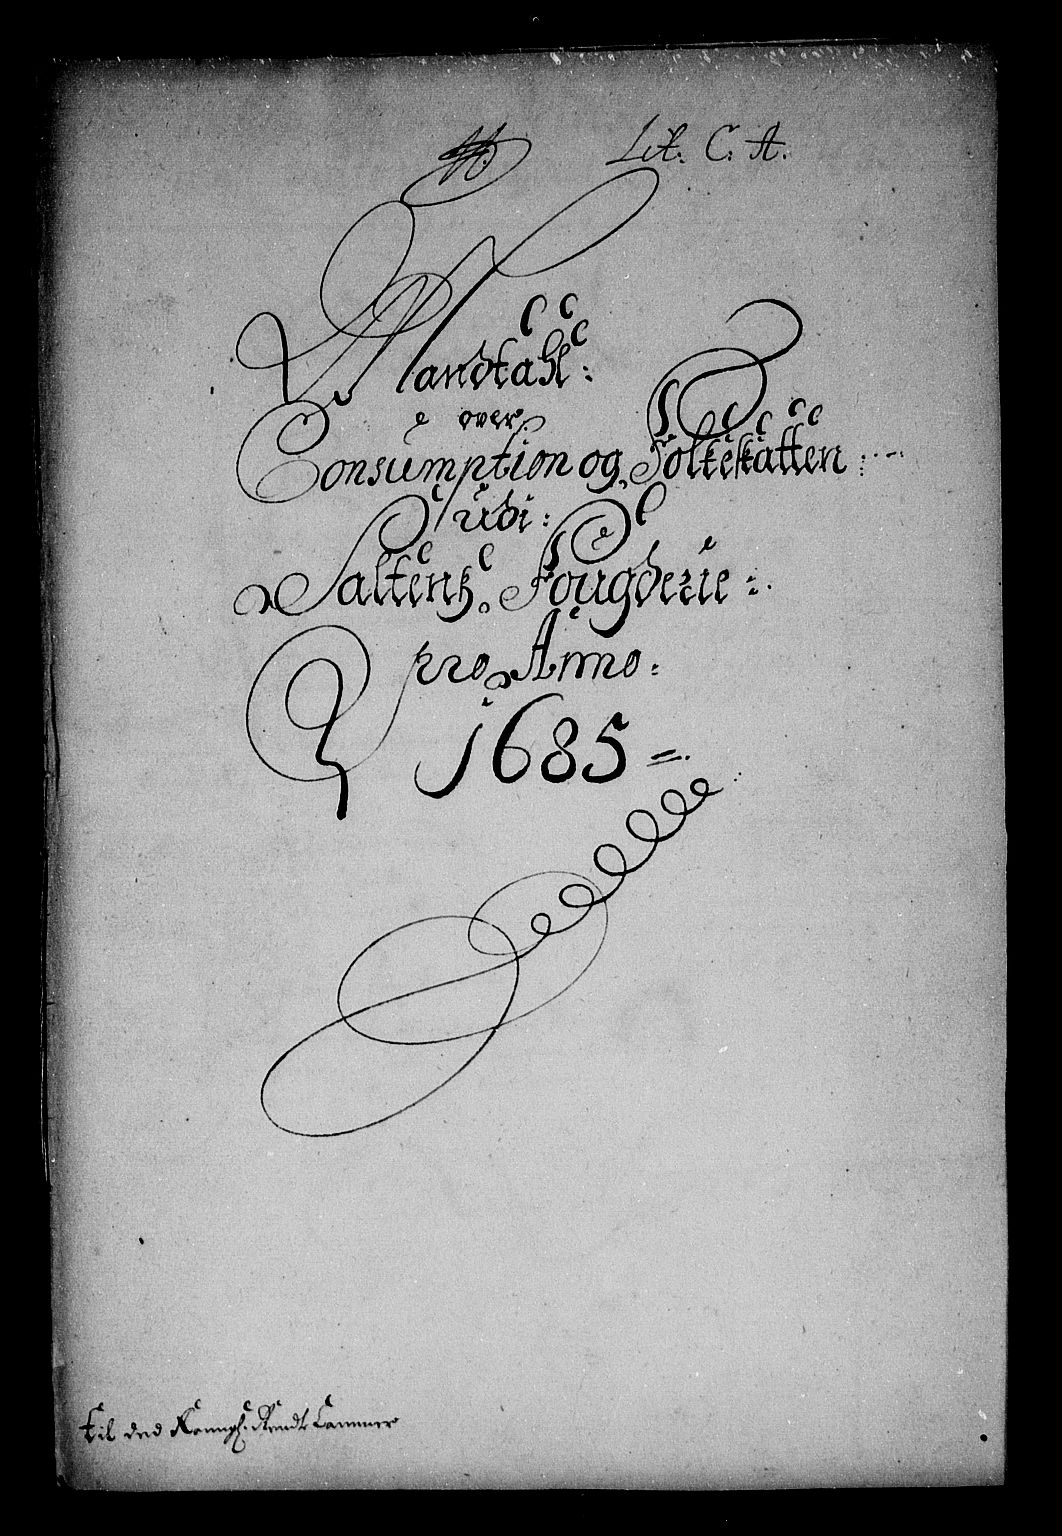 Lit: C: A:
Mandtahl:
over
Consumption og Folkeskatten
udi:
Saltens Fougderie:
pro Anno:
1685
til ded Konngl: Rendt Cammer